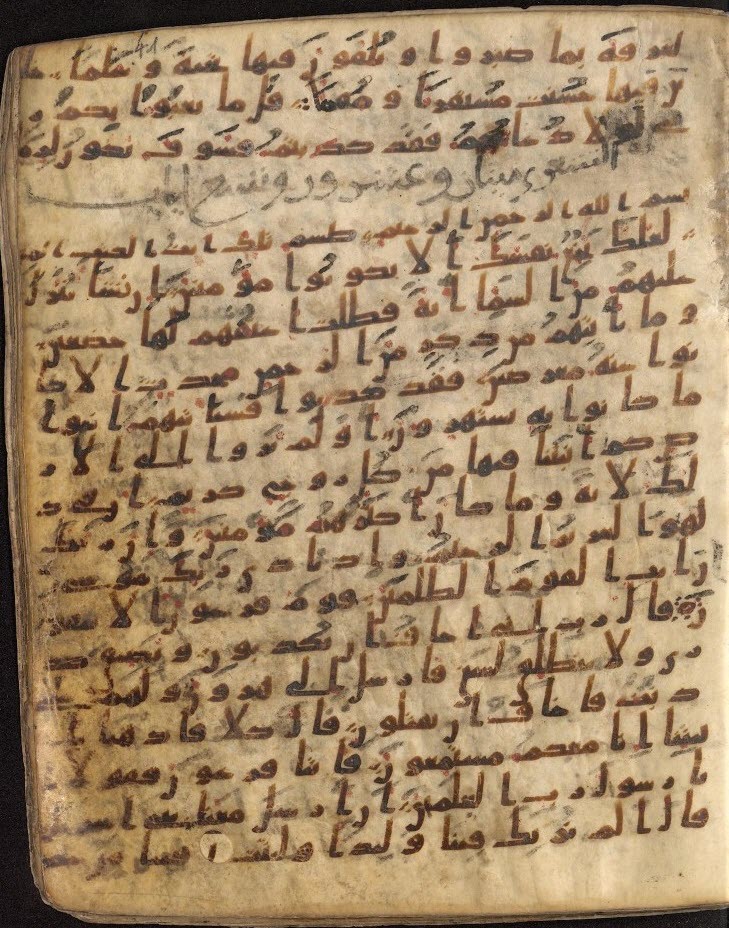 41
لغرفة بما صبروا و يلقون فيها تحية و سلما خلد
ين فيها حسنت مستقرا و مقاما قل ما يعبوا بكم ر
بي لولا دعاوكم فقد كذبتم فسوف يكون لزاما
الشعرى ميتان وعشرون وسبع ايات
بسم الله الرحمن الرحيم طسم تلك ايت الكتب المبـ
ين لعلك بخع نفسك الا يكونوا مومنين ان نشا ننزل
عليهم من السما اية فظلت اعنقهم لها خضعين
و ما ياتيهم من ذكر من الرحمن محدث الا كا
نوا عنه معرضين فقد كذبوا فسياتيهم انبوا
ما كانوا به يستهزون اولم يروا الى الار
ض كم انبتنا فيها من كل زوج كريم ان في ذ
لك لاية و ما كان اكثرهم مومنين و ان ربك
لهو العزيز الرحيم و اذ نادى ربك موسى
ان ايت القوم الظلمين قوم فرعون الا يتقو
ن قال رب اني اخاف ان يكذبون و يضيق صد
ري و لا ينطلق لسني فارسل الى هرون و لهم على
ذنب فاخاف ان يقتلون قال كلا فاذهبا با
يتنا انا معكم مستمعون فاتيا فرعون فقولا ا
نا رسول رب العلمين ان ارسل معنا بني اسريل
قال الم نربك فينا وليدا و لبثت فينا من عمر